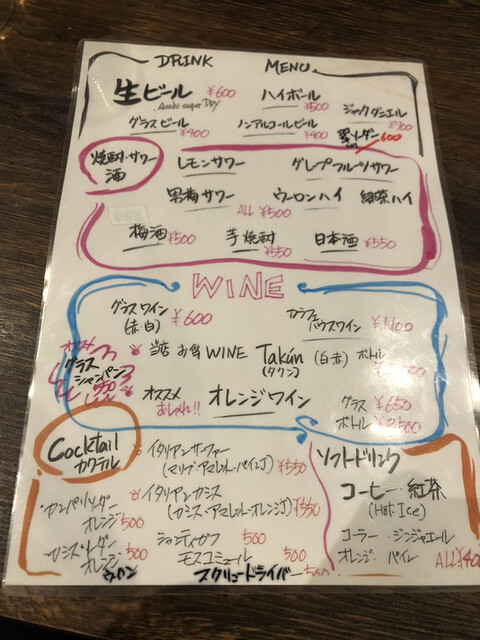 DRINK MENU
生ビール ¥600
Asahi super Dry
ハイボール ¥500
ジャックダニエル ¥700
グラスビール ¥400
ノンアルコールビール ¥400
ソーダー 600
焼酎・サワー
酒
レモンサワー グレープフルーツサワー
男梅サワー ウーロンハイ 緑茶ハイ
ALL ¥500
梅酒 ¥500 芋焼酎 ¥550 日本酒 ¥550
WINE
グラスワイン
(赤・白) ¥600
カラフェ
ハウスワイン
オススメ
グラス
シャンパン
当店 WINE Takún (白赤) ボトル
(タクン)
オススメ
おしゃれ!! オレンジワイン
グラス ¥650
ボトル ¥3500
Cocktail
カクテル
イタリアンサーファー
(マリブ・アマレット・パイン) ¥550
イタリアンカシス
(カシス・アマレット・オレンジ) ¥550
カンパリソーダー
オレンジ 500
カシス・ソーダー
オレンジ 500
ウーロン
シャンディガフ 500
モスコミュール 500
スクリュードライバー 500
ソフトドリンク
コーヒー・紅茶
(Hot・Ice)
コーラ・ジンジャエール
オレンジ・パイン ALL ¥400